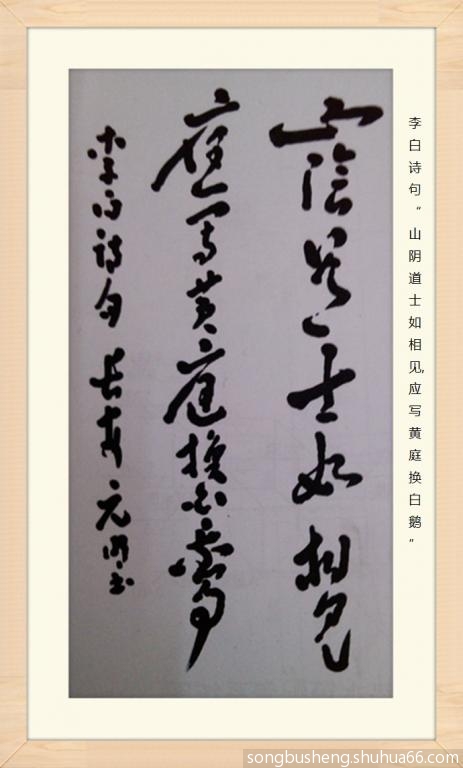 李白诗句“山阴道士如相见,应写黄庭换白鹅”
山陰道士如相見
應寫黃庭換白鵞
李白詩句 长安 元明书
songbusheng.shuhua66.com